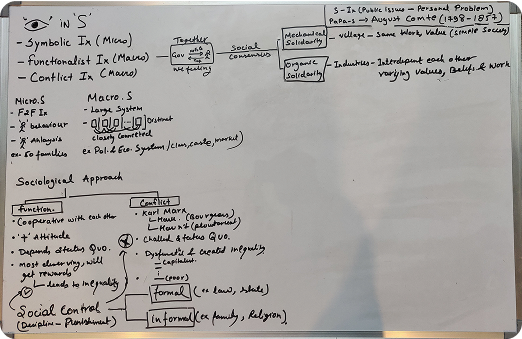 in 'S'
S - Ix (Public issues - Personal Problem)
Papa-s → August Comte (1798-1857)
- Symbolic Ix (Micro)
- Functionalist Ix (Macro)
- Conflict Ix (Macro)
Together
Gov
we feeling
Social
consensus
Mechanical
Solidarity
- village - Same work, value (Simple Society)
Organic
Solidarity
- Industries - Interdepent each other
varying values, Beliefs & Work
Micro.S
- F2F Ix
- behaviour
- Anlaysis
ex- 50 families
Macro.S
- Large System
- Distinct
closely connected
ex Pol. & Eco. System / Class, caste, market)
Sociological Approach
function.
• Cooperative with each other
• '+' Attitude
• Depends Status Quo.
• most deserving will
get rewards
↳ leads to inequality
Conflict
• Karl Marx
↳ Have (Bourgeois)
↳ Haven't
• Challed Status Quo.
• & created inequality
- Capitalist
- (poor)
Social Control
(Discipline - Punishment)
formal (ex law, state)
Informal (ex family, Religion)